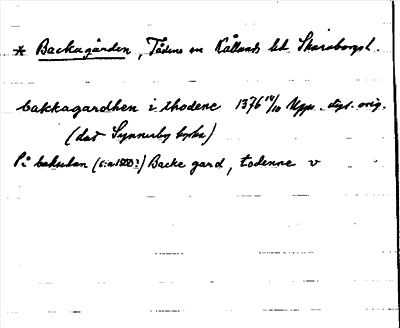 * Backagården, Tådene sn Kållands hd Skaraborgs l.
bakkagardhen i thodene 1376 14/10 Upps. dipl. orig.
(dat Synnerby kyrka)
På baksidan (s:a 1500?) Backe gard, todenne v